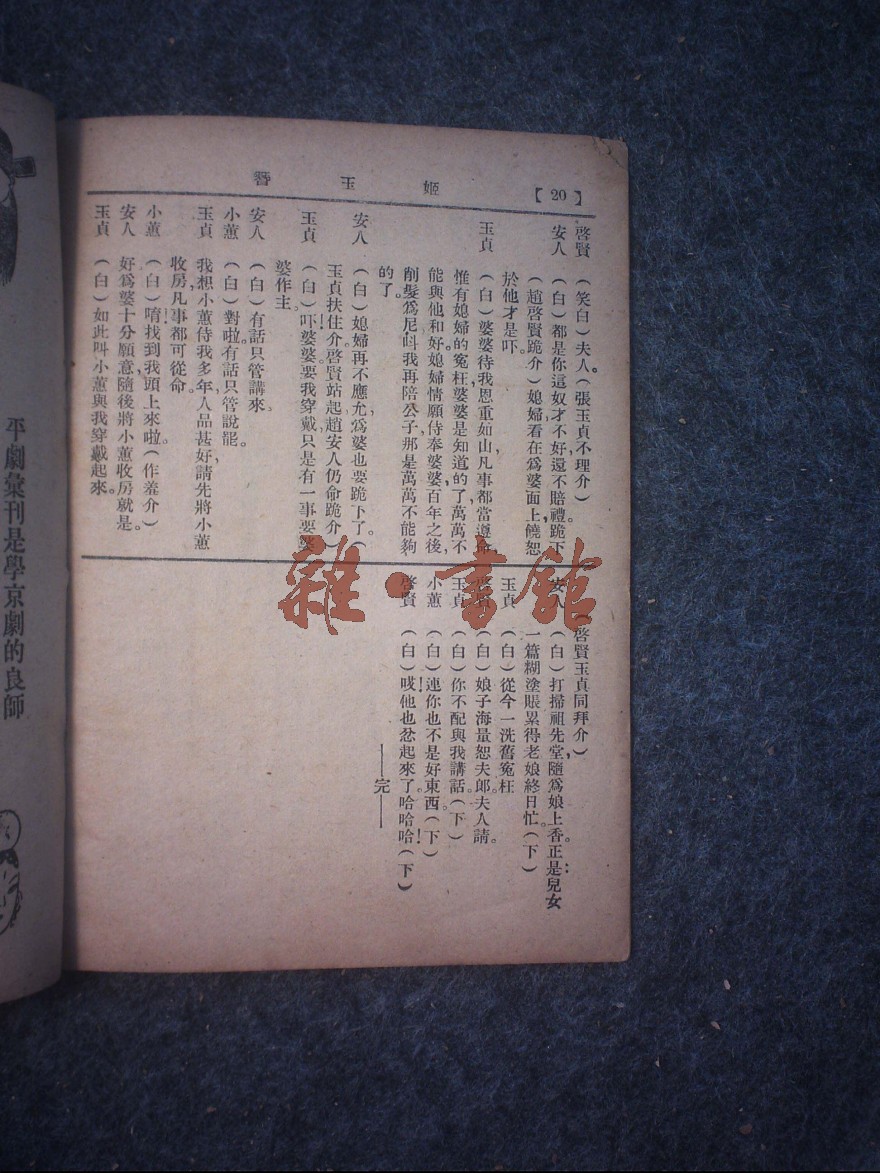 【20】
姬玉簪
啓賢 （笑白）夫人。（張玉貞不理介）
安人 （白）都是你這奴才不好，還不賠禮跪下。
（趙啓賢跪介）媳婦看在爲婆面上，饒恕
於他才是吓。
玉貞 （白）婆婆待我恩重如山，凡事都當遵命，
惟有媳婦的冤枉，婆婆是知道的了，萬萬不
能與他和好，媳婦情願侍奉婆婆，百年之後，
削髮爲尼，叫我再陪公子，那是萬萬不能夠
的了。
安人 （白）媳婦再不應允，爲婆也要跪下了。（
玉貞扶住介啓賢站起趙安人仍命跪介）
玉貞 （白）吓婆婆！要我穿戴，只是有一事要婆
婆作主。
安人 （白）有話只管講來。
小蕙 （白）對啦，有話只管說罷。
玉貞 我想小蕙侍我多年，人品甚好，請先將小蕙
收房，凡事都可從命。
小蕙 （白）唷！找到我頭上來啦。（作羞介）
安人 好，爲婆十分願意，隨後將小蕙收房就是。
玉貞 （白）如此叫小蕙與我穿戴起來。
（啓賢玉貞同拜介）
安人 （白）打掃祖先堂，隨爲娘上香。正是：兒女
一篇糊塗賬，累得老娘終日忙。（下）
玉貞 （白）從今一洗舊冤枉
啓賢 （白）娘子海量恕夫郎，夫人請。
玉貞 （白）你不配與我講話。（下）
小蕙 （白）連你也不是好東西。（下）
啓賢 （白）哎！他也忿起來了。哈哈哈！（下）
——完——
平劇彙刊是學京劇的良師
雜·書館